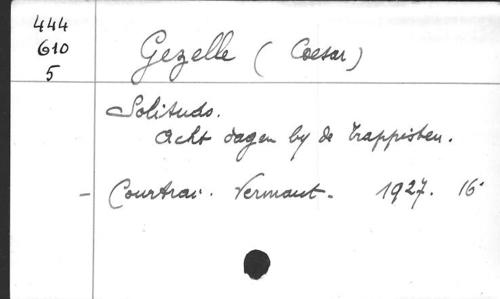 444
610
5
Gezelle (Coesar)
Solitudo.
Acht dagen by de Trappisten.
- Courtrai. Vermaut. 1927. 16°